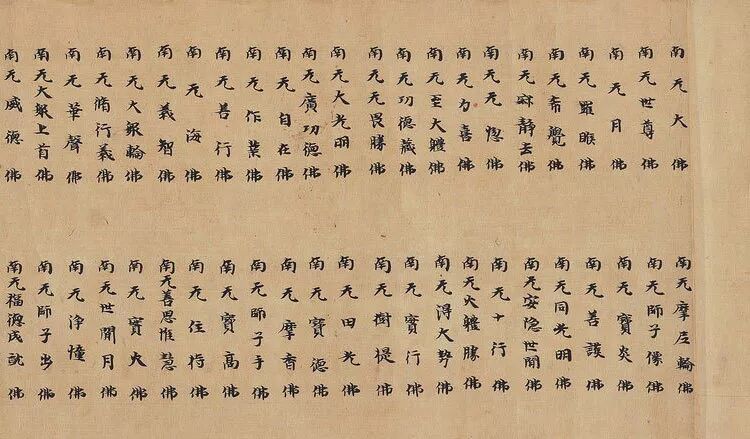 南无大佛
南无世尊佛
南无月佛
南无羅睺佛
南无希覺佛
南无寂静去佛
南无惚佛
南无力喜佛
南无至大體佛
南无功德藏佛
南无无畏勝佛
南无大光明佛
南无廣功德佛
南无自在佛
南无作業佛
南无善行佛
南无海佛
南无義智佛
南无大眾輪佛
南无脩行義佛
南无華聲佛
南无大眾上首佛
南无威德佛
南无摩尼輪佛
南无師子像佛
南无寶炎佛
南无善護佛
南无同光明佛
南无安隱世間佛
南无十行佛
南无火體勝佛
南无得大勢佛
南无寶行佛
南无樹提佛
南无田光佛
南无寶德佛
南无摩香佛
南无師子手佛
南无寶高佛
南无住持佛
南无善思惟慧佛
南无寶火佛
南无世間月佛
南无淨幢佛
南无師子步佛
南无福德成就佛